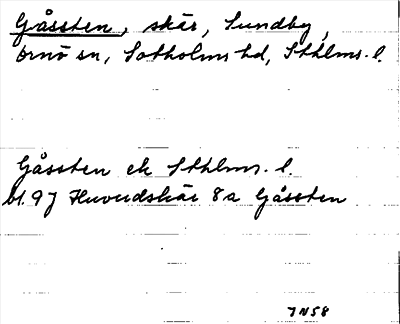 Gåssten, skär, Sundby,
Ornö sn, Sotholms hd, Sthlms. l.
Gåssten ek Sthlms. l.
bl. 97 Huvudskär 8a Gåssten
7 N 58